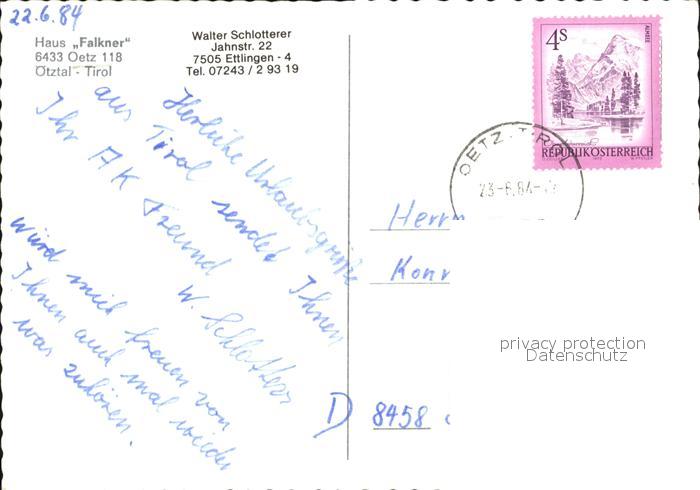 22.6.84
Haus „Falkner“
6433 Oetz 118
Ötztal - Tirol
Walter Schlotterer
Jahnstr. 22
7505 Ettlingen - 4
Tel. 07243 / 2 93 19
Herzliche Urlaubsgrüße
aus Tirol sendet Ihnen
Ihr AK Freund
W. Schlotterer
würd mich freuen von
Ihnen auch mal wieder
was zu hören.
4S
ALMSEE
REPUBLIK ÖSTERREICH
OETZ, TIROL
23-6.84-
Herrn
Konr
D 8458
privacy protection
Datenschutz